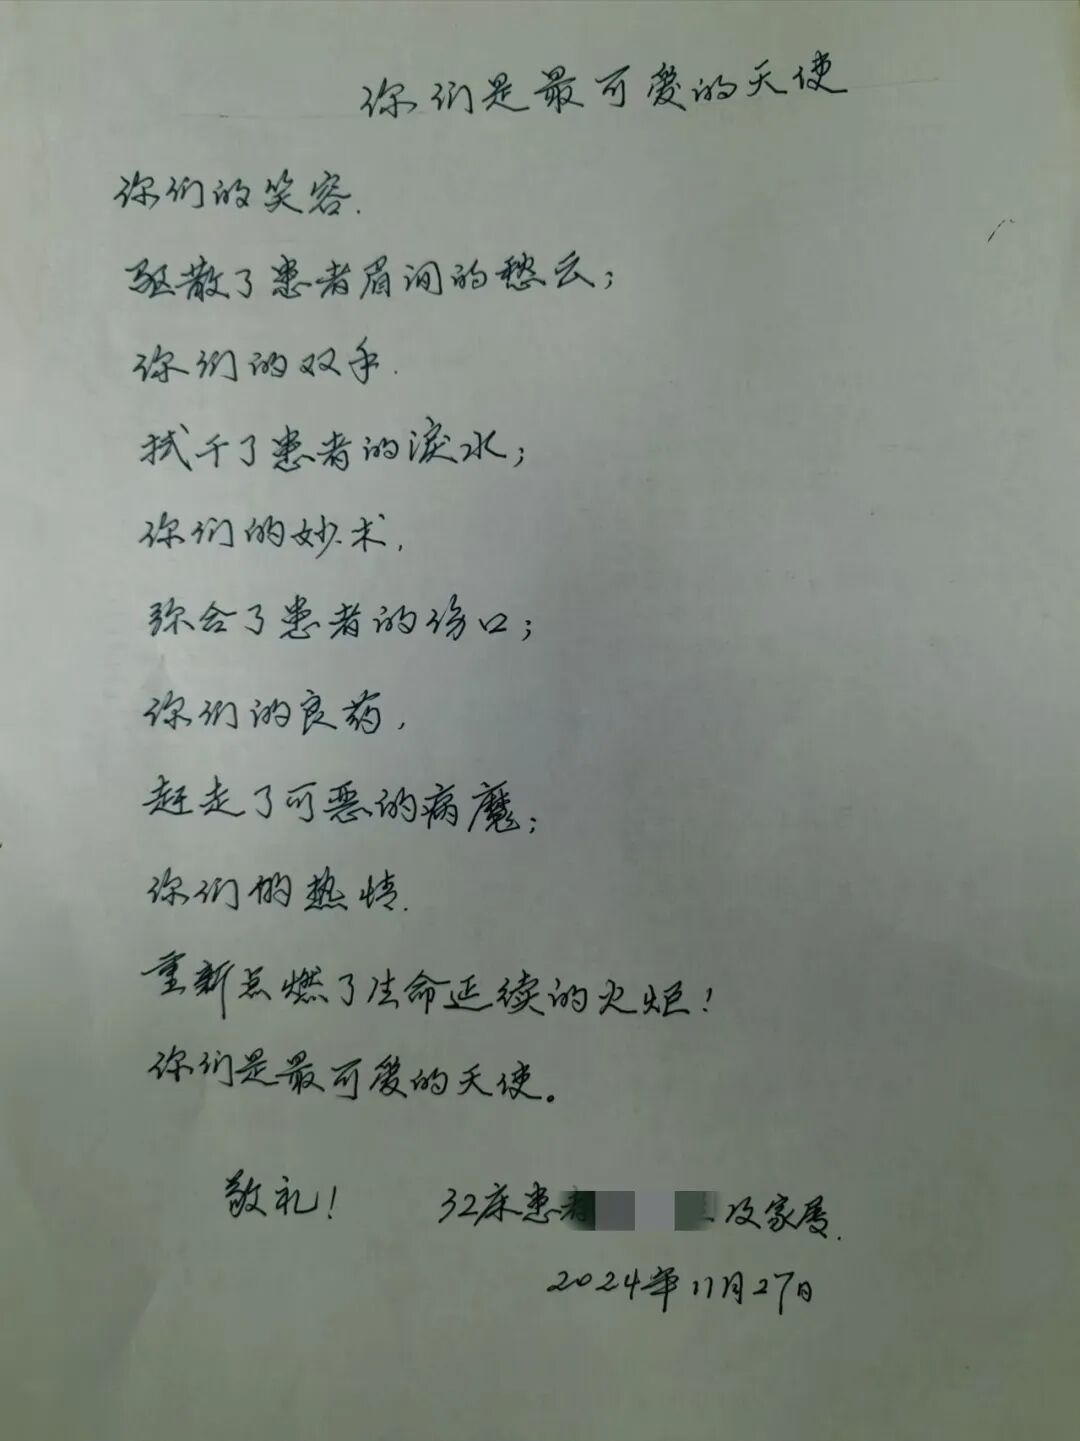 你们是最可爱的天使
你们的笑容.
驱散了患者眉间的愁云;
你们的双手.
拭干了患者的泪水;
你们的妙术,
弥合了患者的伤口;
你们的良药,
赶走了可恶的病魔;
你们的热情.
重新点燃了生命延续的火炬!
你们是最可爱的天使。
敬礼! 32床患者 及家属.
2024年11月27日